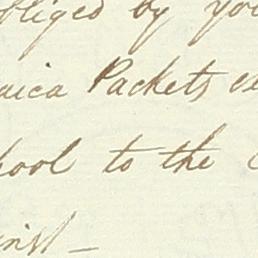 obliged by you
aica Packets ex
hool to the
inst -